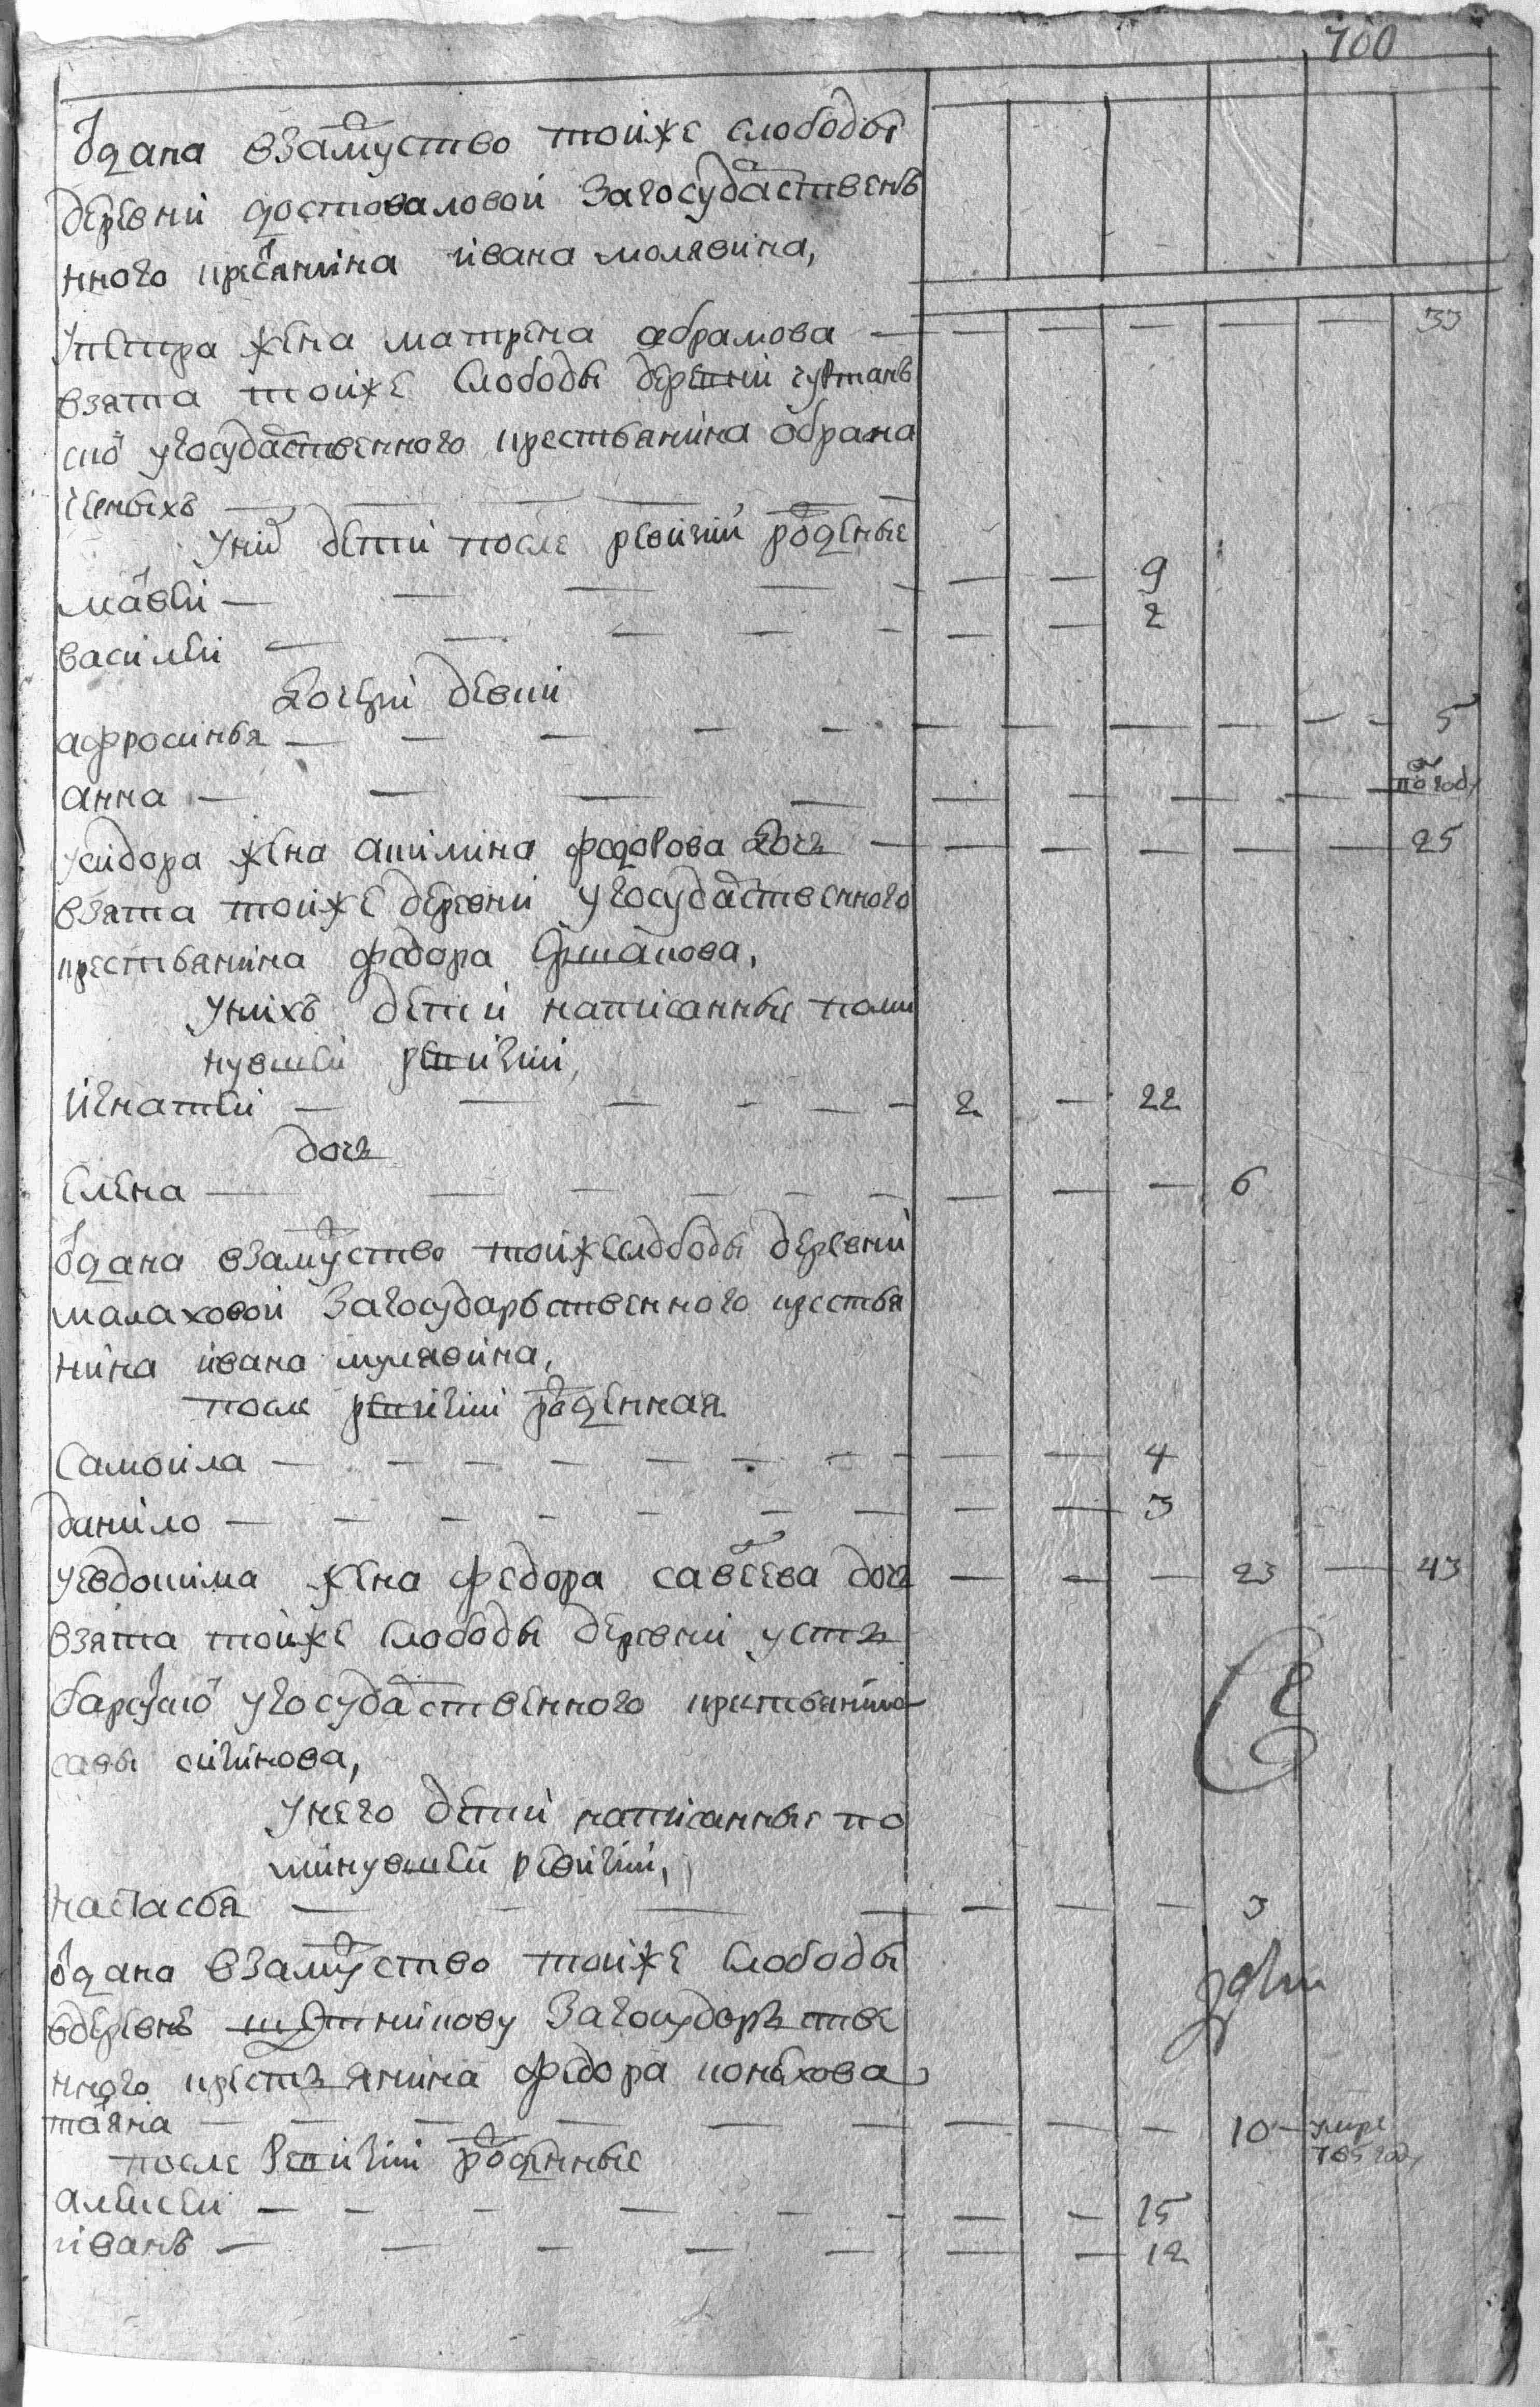 700
Одана взамуство тоиже слободы
деревни достоваловой за государствень
нного крестянина ивана молявина,
упетра жена матрена абрамова — — — — — — 33
взята тоиже слободы деревни
ской угосударственного крестьянина обрама
— — — — —
уних дети после ревизии рожденые
матвеи — — — — — — — 9
василеи — — — — — — — 2
дочери девки
афросинья — — — — — — — — — — — 5
анна — — — — — — — — — полгоду
усидора жена акилина федорова дочь — — — — — — 25
взята тоиже деревни угосударственного
крестьянина федора Ярмакова,
унихъ дети написанные поми
нувшеи ревизии,
игнатеи — — — — — — 2 — 22
дочь
елена — — — — — — — — — 6
одана взамуство тоиже слободы деревни
малаховой за государьственного крестья
нина ивана мулявина,
после ревизии рожденная
самоила — — — — — — — — — — 4
данило — — — — — — — — — 3
уевдокима жена федора савеева дочь — — — 23 — 43
взята тоиже слободы деревни усть
угосударственного крестьянина
савы сичинова,
унего дети написанные по
минувшеи ревизии,
настасья — — — — — — — 3
одана взамуство тоиже слободы
вдеревнь за государьстве
нного крестьянина федора конюхова
татьяна — — — — — — — — — 10 — умре
765 году
после ревизии рожденные
алексеи — — — — — — — — 15
иванъ — — — — — — — 12